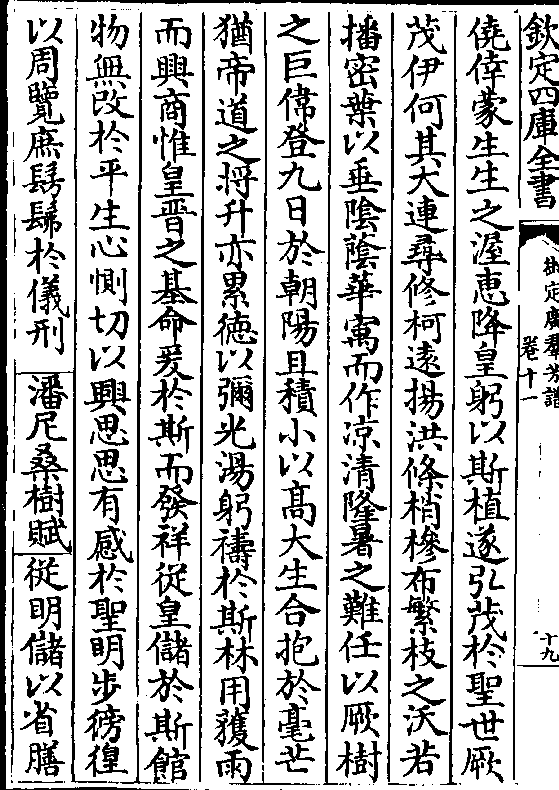 欽定四庫全書
御定廣羣芳譜
卷十一
十九
僥倖蒙生生之渥恵降皇躬以斯植遂弘茂於聖世厥
茂伊何其大連尋修柯逺揚洪條梢槮布繁枝之沃若
播密葉以垂隂蔭華㝢而作凉清隆暑之難任以厥樹
之巨偉登九日於朝陽且積小以髙大生合抱於毫芒
猶帝道之将升亦累徳以彌光湯躬禱於斯林用獲雨
而興商惟皇晉之基命爰於斯而發祥從皇儲於斯館
物無改於平生心惻切以興思思有感於聖明步徬徨
以周覽庶髣髴於儀刑 潘尼桑樹賦 從明儲以省膳